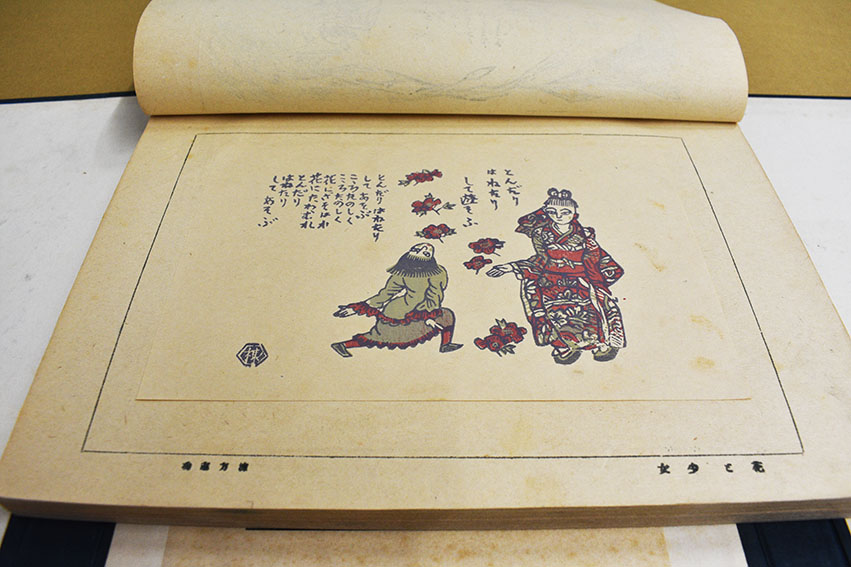 とんだり
はねたり
して遊そぶ
とんだりはねたり
してあそぶ
こゝろたのしく
こゝろたのしく
花にさそはれ
花にたわむれ
とんだり
はねたり
してあそぶ
花と少女
棟方志功